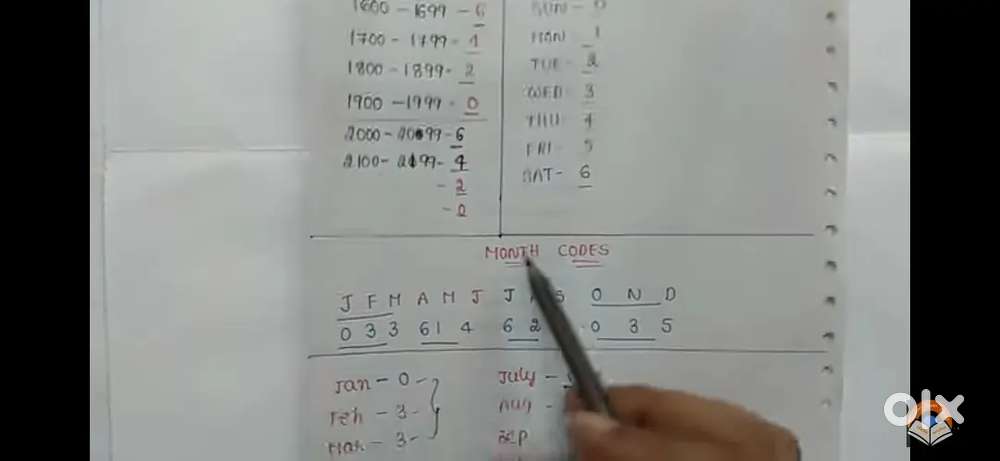 1600 - 1699 - 6
1700 - 1799 -
1800 - 1899 - 2
1900 - 1999 - 0
2000 - 2099 - 6
2100 - 2199 - 4
- 2
- 0
SUN - 0
MON - 1
TUE - 2
WED - 3
THU - 4
FRI - 5
SAT - 6
MONTH CODES
J F M A M J J S O N D
0 3 3 6 1 4 6 2 0 3 5
Jan - 0 -
Feb - 3 -
Mar - 3 -
July -
Aug -
SEP
olx